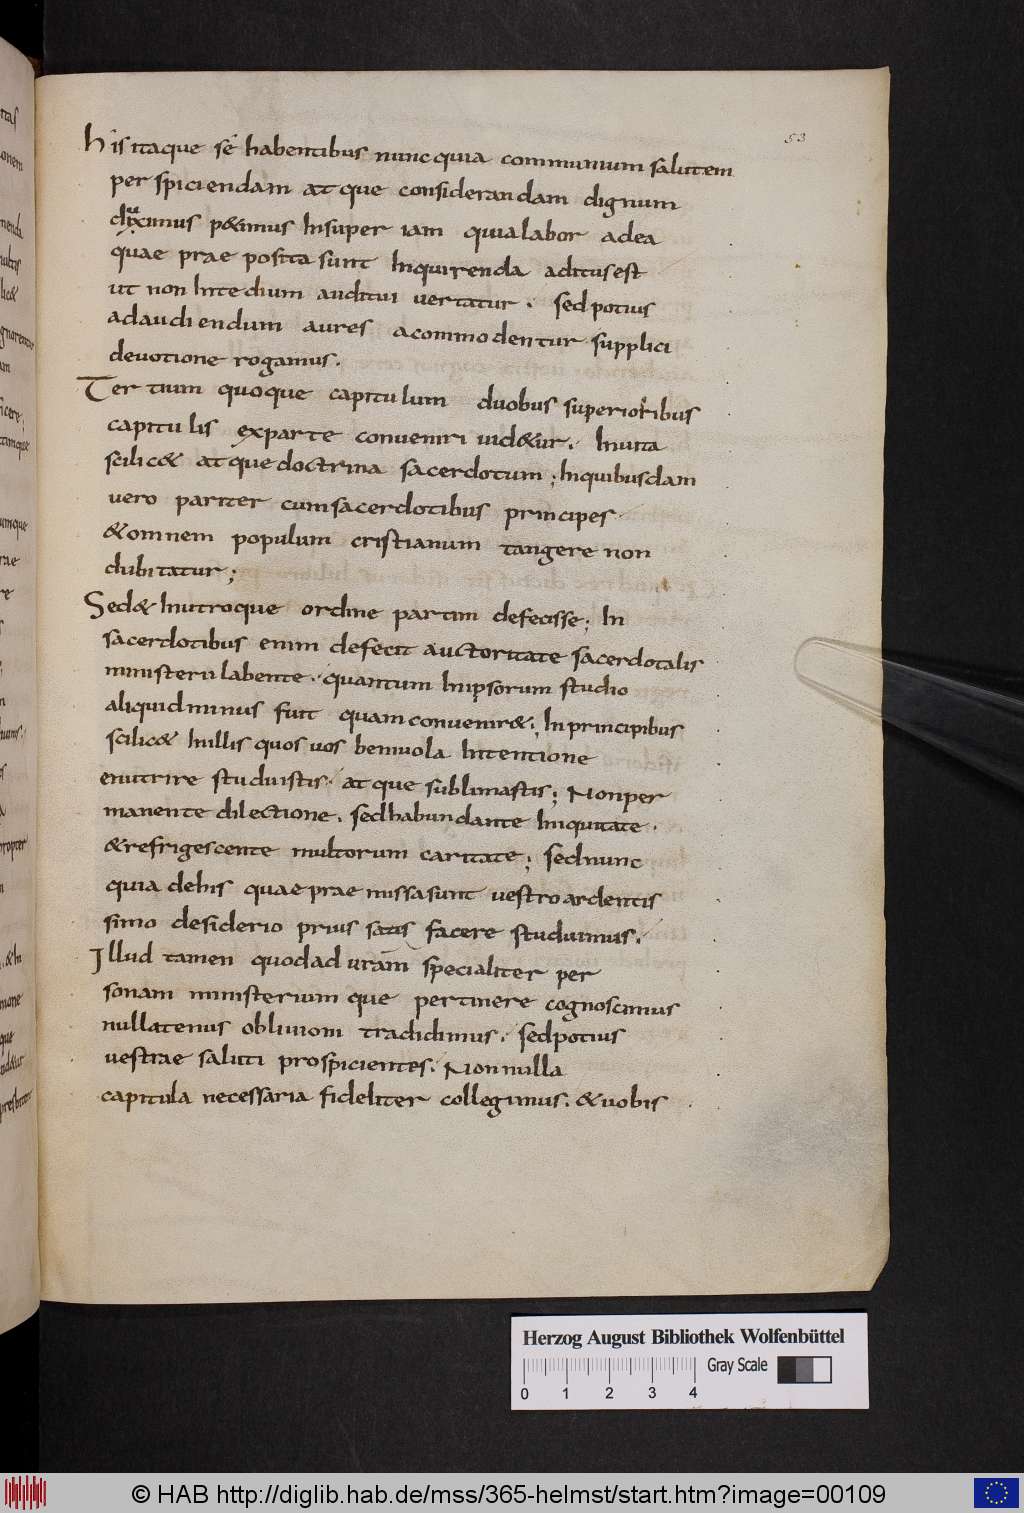 53
his itaque se habentibus nunc quia communium salutem
perspiciendam atque considerandam dignum
duximus p&imus Insuper iam quia labor adea
quae prae posita sunt Inquirenda aditus est
ut non Intedium auditui vertatur. sed potius
ad audiendum aures acommodentur supplici
devotione rogamus.
Tertium quoque capitulum duobus superioribus
capitulis exparte conveniri uid&ur. Inuita
scilic& atque doctrina sacerdotum; Inquibusdam
vero pariter cum sacerdotibus principes
&omnem populum cristianum tangere non
dubitatur;
Sed& Inutroque ordine partim defecisse; In
sacerdotibus enim defecit auctoritate sacerdotalis
ministerii labente. quantum Inipsorum studio
aliquid minus fuit quam convenir&; In principibus
scilic& Inillis quos vos benivola Intentione
enutrire studuistis. atque sublimastis; Non per
manente dilectione. sed habundante Iniquitate.
&refrigescente multorum caritate; sed nunc
quia dehis quae prae missa sunt vestro ardentis
simo desiderio prius satis facere studuimus.
Illud tamen quod ad uram specialiter per
sonam ministerium que pertinere cognoscimus
nullatenus oblivioni tradidimus. sed potius
vestrae saluti prospicientes. Non nulla
capitula necessaria fideliter collegimus. &vobis
Herzog August Bibliothek Wolfenbüttel
Gray Scale
0 1 2 3 4
© HAB http://diglib.hab.de/mss/365-helmst/start.htm?image=00109